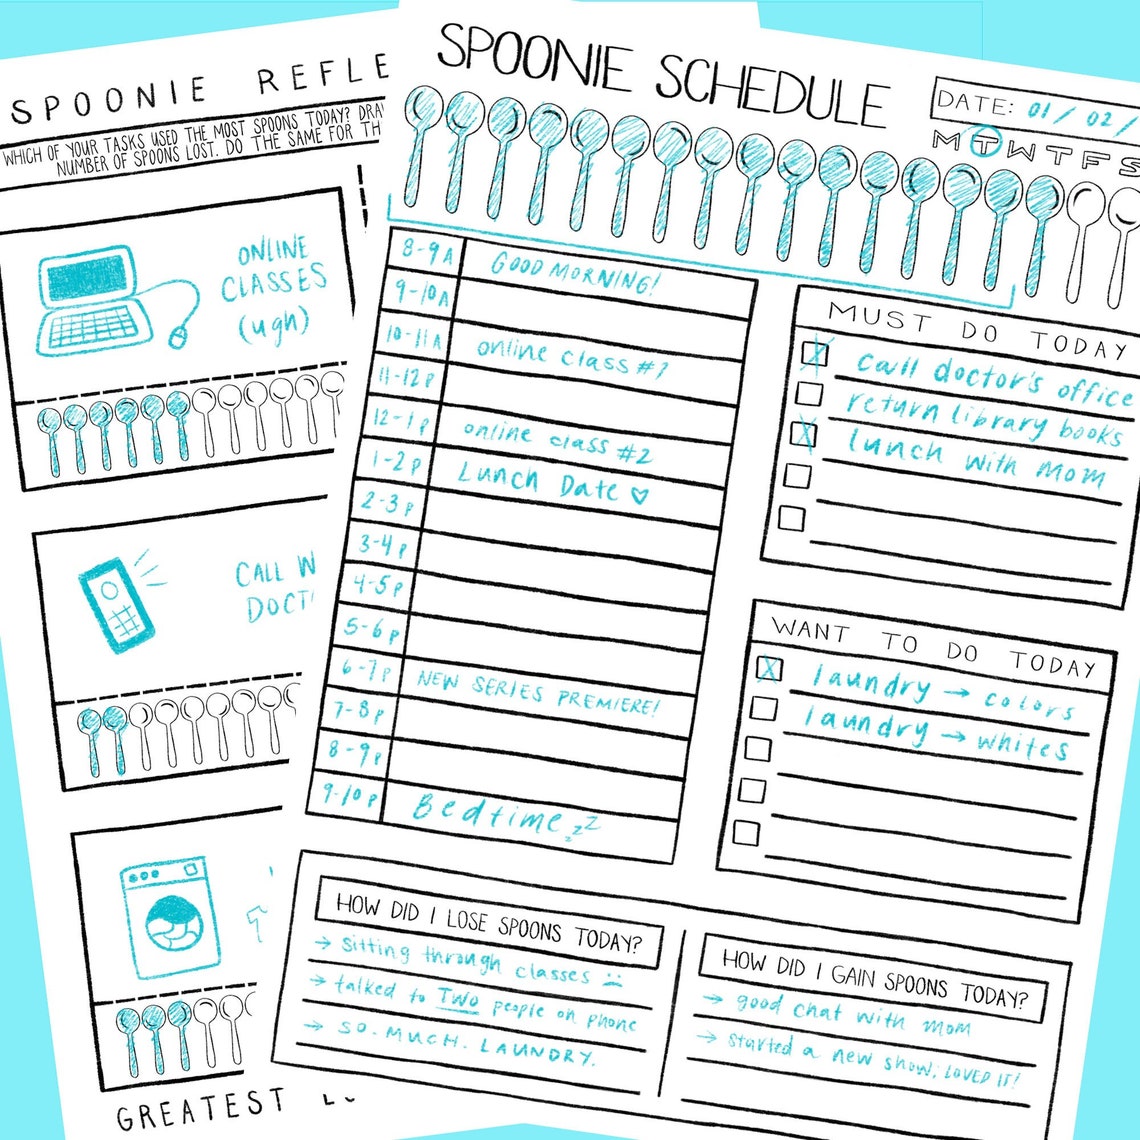 SPOONIE REFLE
WHICH OF YOUR TASKS USED THE MOST SPOONS TODAY? DRA
NUMBER OF SPOONS LOST. DO THE SAME FOR TH
ONLINE
CLASSES
(ugh)
CALL W
DOCT
GREATEST
SPOONIE SCHEDULE
DATE: 01/02/
M T W T F S
8-9A GOOD MORNING!
9-10A
10-11A online class #1
11-12P
12-1P online class #2
1-2P Lunch Date ♡
2-3P
3-4P
4-5P
5-6P
6-7P NEW SERIES PREMIERE!
7-8P
8-9P
9-10P Bedtime zzz
MUST DO TODAY
X call doctor's office
return library books
X lunch with mom
WANT TO DO TODAY
X laundry → colors
laundry → whites
HOW DID I LOSE SPOONS TODAY?
→ sitting through classes ☹
→ talked to TWO people on phone
→ SO. MUCH. LAUNDRY.
HOW DID I GAIN SPOONS TODAY?
→ good chat with mom
→ started a new show; LOVED IT!